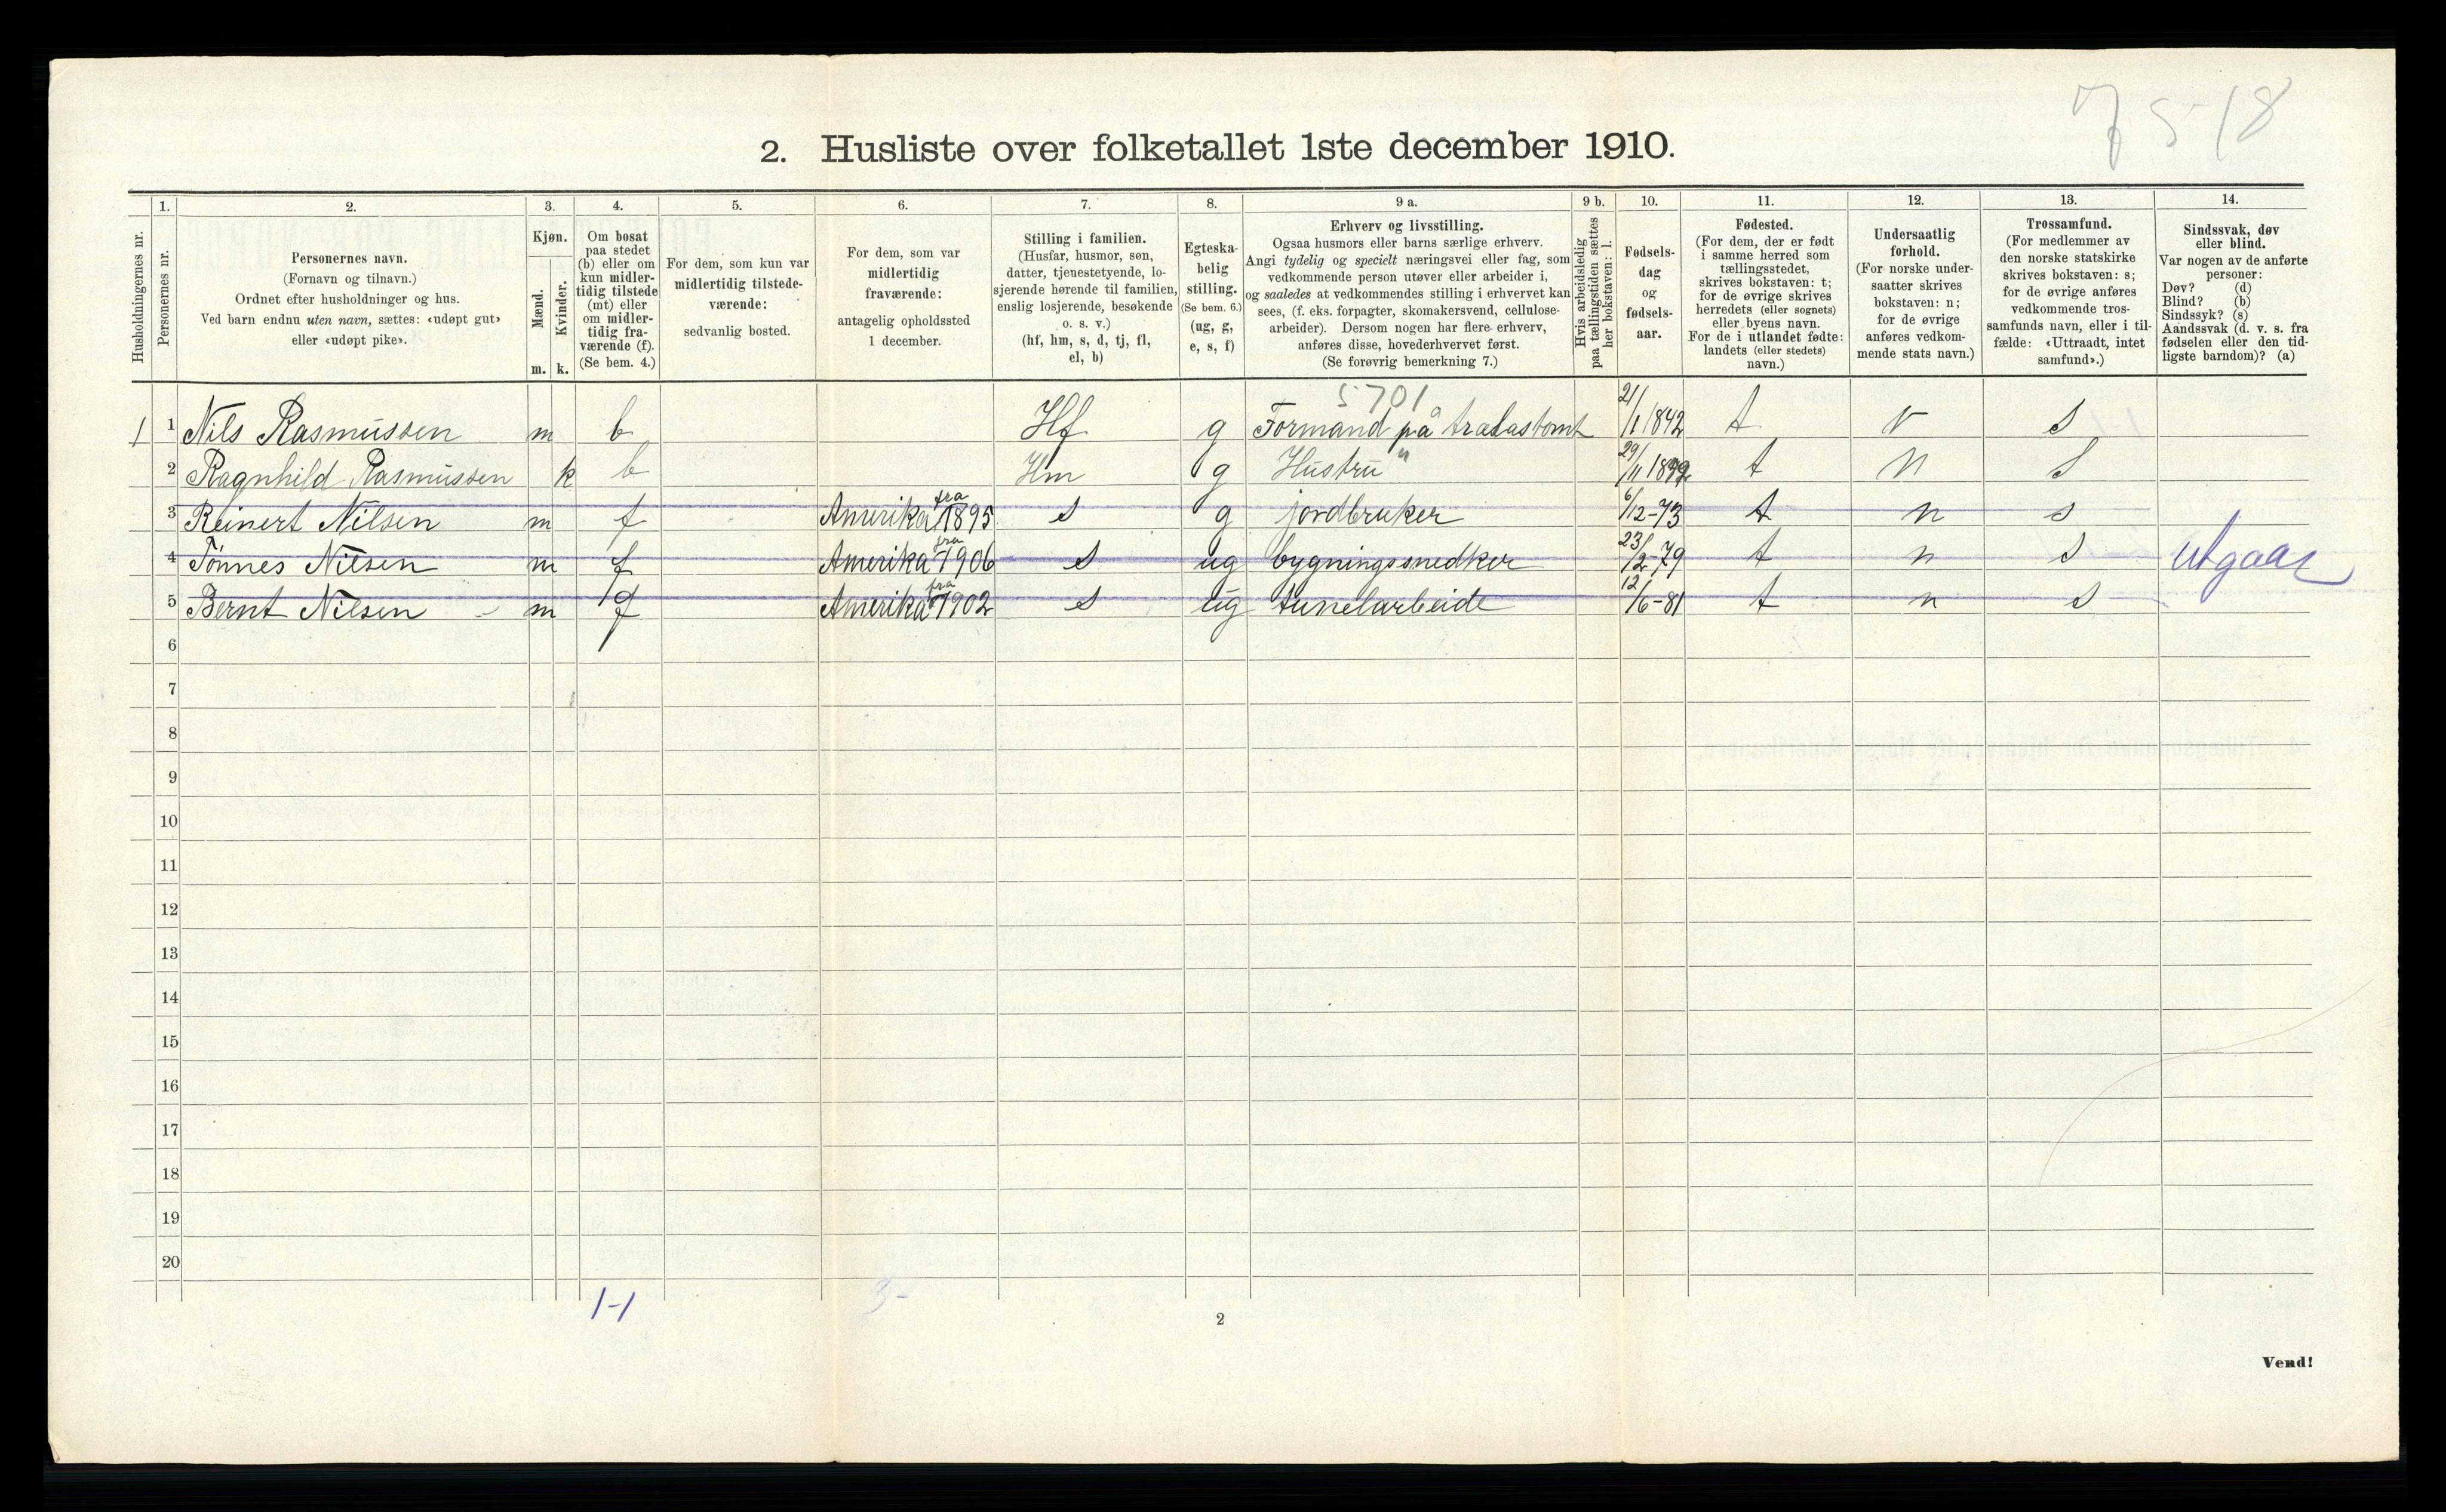 7518
2. Husliste over folketallet 1ste december 1910.
Husholdningernes nr.
1.
Personernes nr.
2.
Personernes navn.
(Fornavn og tilnavn.)
Ordnet efter husholdninger og hus.
Ved barn endnu uten navn, sættes: «udøpt gut»
eller «udøpt pike».
3.
Kjøn.
Mænd.
Kvinder.
m. k.
4.
Om bosat
paa stedet
(b) eller om
kun midler-
tidig tilstede
(mt) eller
om midler-
tidig fra-
værende (f).
(Se bem. 4.)
5.
For dem, som kun var
midlertidig tilstede-
værende:
sedvanlig bosted.
6.
For dem, som var
midlertidig
fraværende:
antagelig opholdssted
1 december.
7.
Stilling i familien.
(Husfar, husmor, søn,
datter, tjenestetyende, lo-
sjerende hørende til familien,
enslig losjerende, besøkende
o. s. v.)
(hf, hm, s, d, tj, fl,
el, b)
8.
Egteska-
belig
stilling.
(Se bem. 6.)
(ug, g,
e, s, f)
9 a.
Erhverv og livsstilling.
Ogsaa husmors eller barns særlige erhverv.
Angi tydelig og specielt næringsvei eller fag, som
vedkommende person utøver eller arbeider i,
og saaledes at vedkommendes stilling i erhvervet kan
sees, (f. eks. forpagter, skomakersvend, cellulose-
arbeider). Dersom nogen har flere erhverv,
anføres disse, hovederhvervet først.
(Se forøvrig bemerkning 7.)
9 b.
Hvis arbeidsledig
paa tællingstiden sættes
her bokstaven: l.
10.
Fødsels-
dag
og
fødsels-
aar.
11.
Fødested.
(For dem, der er født
i samme herred som
tællingsstedet,
skrives bokstaven: t;
for de øvrige skrives
herredets (eller sognets)
eller byens navn.
For de i utlandet fødte:
landets (eller stedets)
navn.)
12.
Undersaatlig
forhold.
(For norske under-
saatter skrives
bokstaven: n;
for de øvrige
anføres vedkom-
mende stats navn.)
13.
Trossamfund.
(For medlemmer av
den norske statskirke
skrives bokstaven: s;
for de øvrige anføres
vedkommende tros-
samfunds navn, eller i til-
fælde: «Uttraadt, intet
samfund».)
14.
Sindssvak, døv
eller blind.
Var nogen av de anførte
personer:
Døv? (d)
Blind? (b)
Sindssyk? (s)
Aandssvak (d. v. s. fra
fødselen eller den tid-
ligste barndom)? (a)
5701
1 1 Nils Rasmussen m b Hf g Formand på trælastomt 21/1 1842 t n s
2 Ragnhild Rasmussen k b Hm g Hustru " 29/11 t n s
3 Reinert Nilsen m f Amerika fra 1895 s g jordbruker 6/12-73 t n s
4 Tönnes Nilsen m f Amerika fra 1906 s ug bygningssnedker 23/2-79 t n s utgaar
5 Bernt Nilsen m f Amerika fra 1902 s ug tunelarbeide 12/6-81 t n s
6
7
8
9
10
11
12
13
14
15
16
17
18
19
20
1-1
3-
2
Vend!